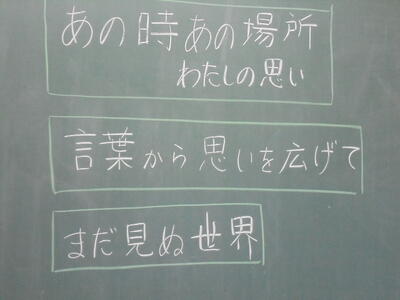 あの時あの場所
わたしの思い
言葉から思いを広げて
まだ見ぬ世界